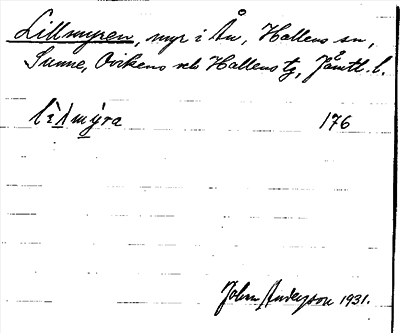 Lillmyren, myr i Ån, Hallens sn,
Sunne, Ovikens och Hallens tg, Jämtl. l.
lìlmýra 176
John Anderson 1931.